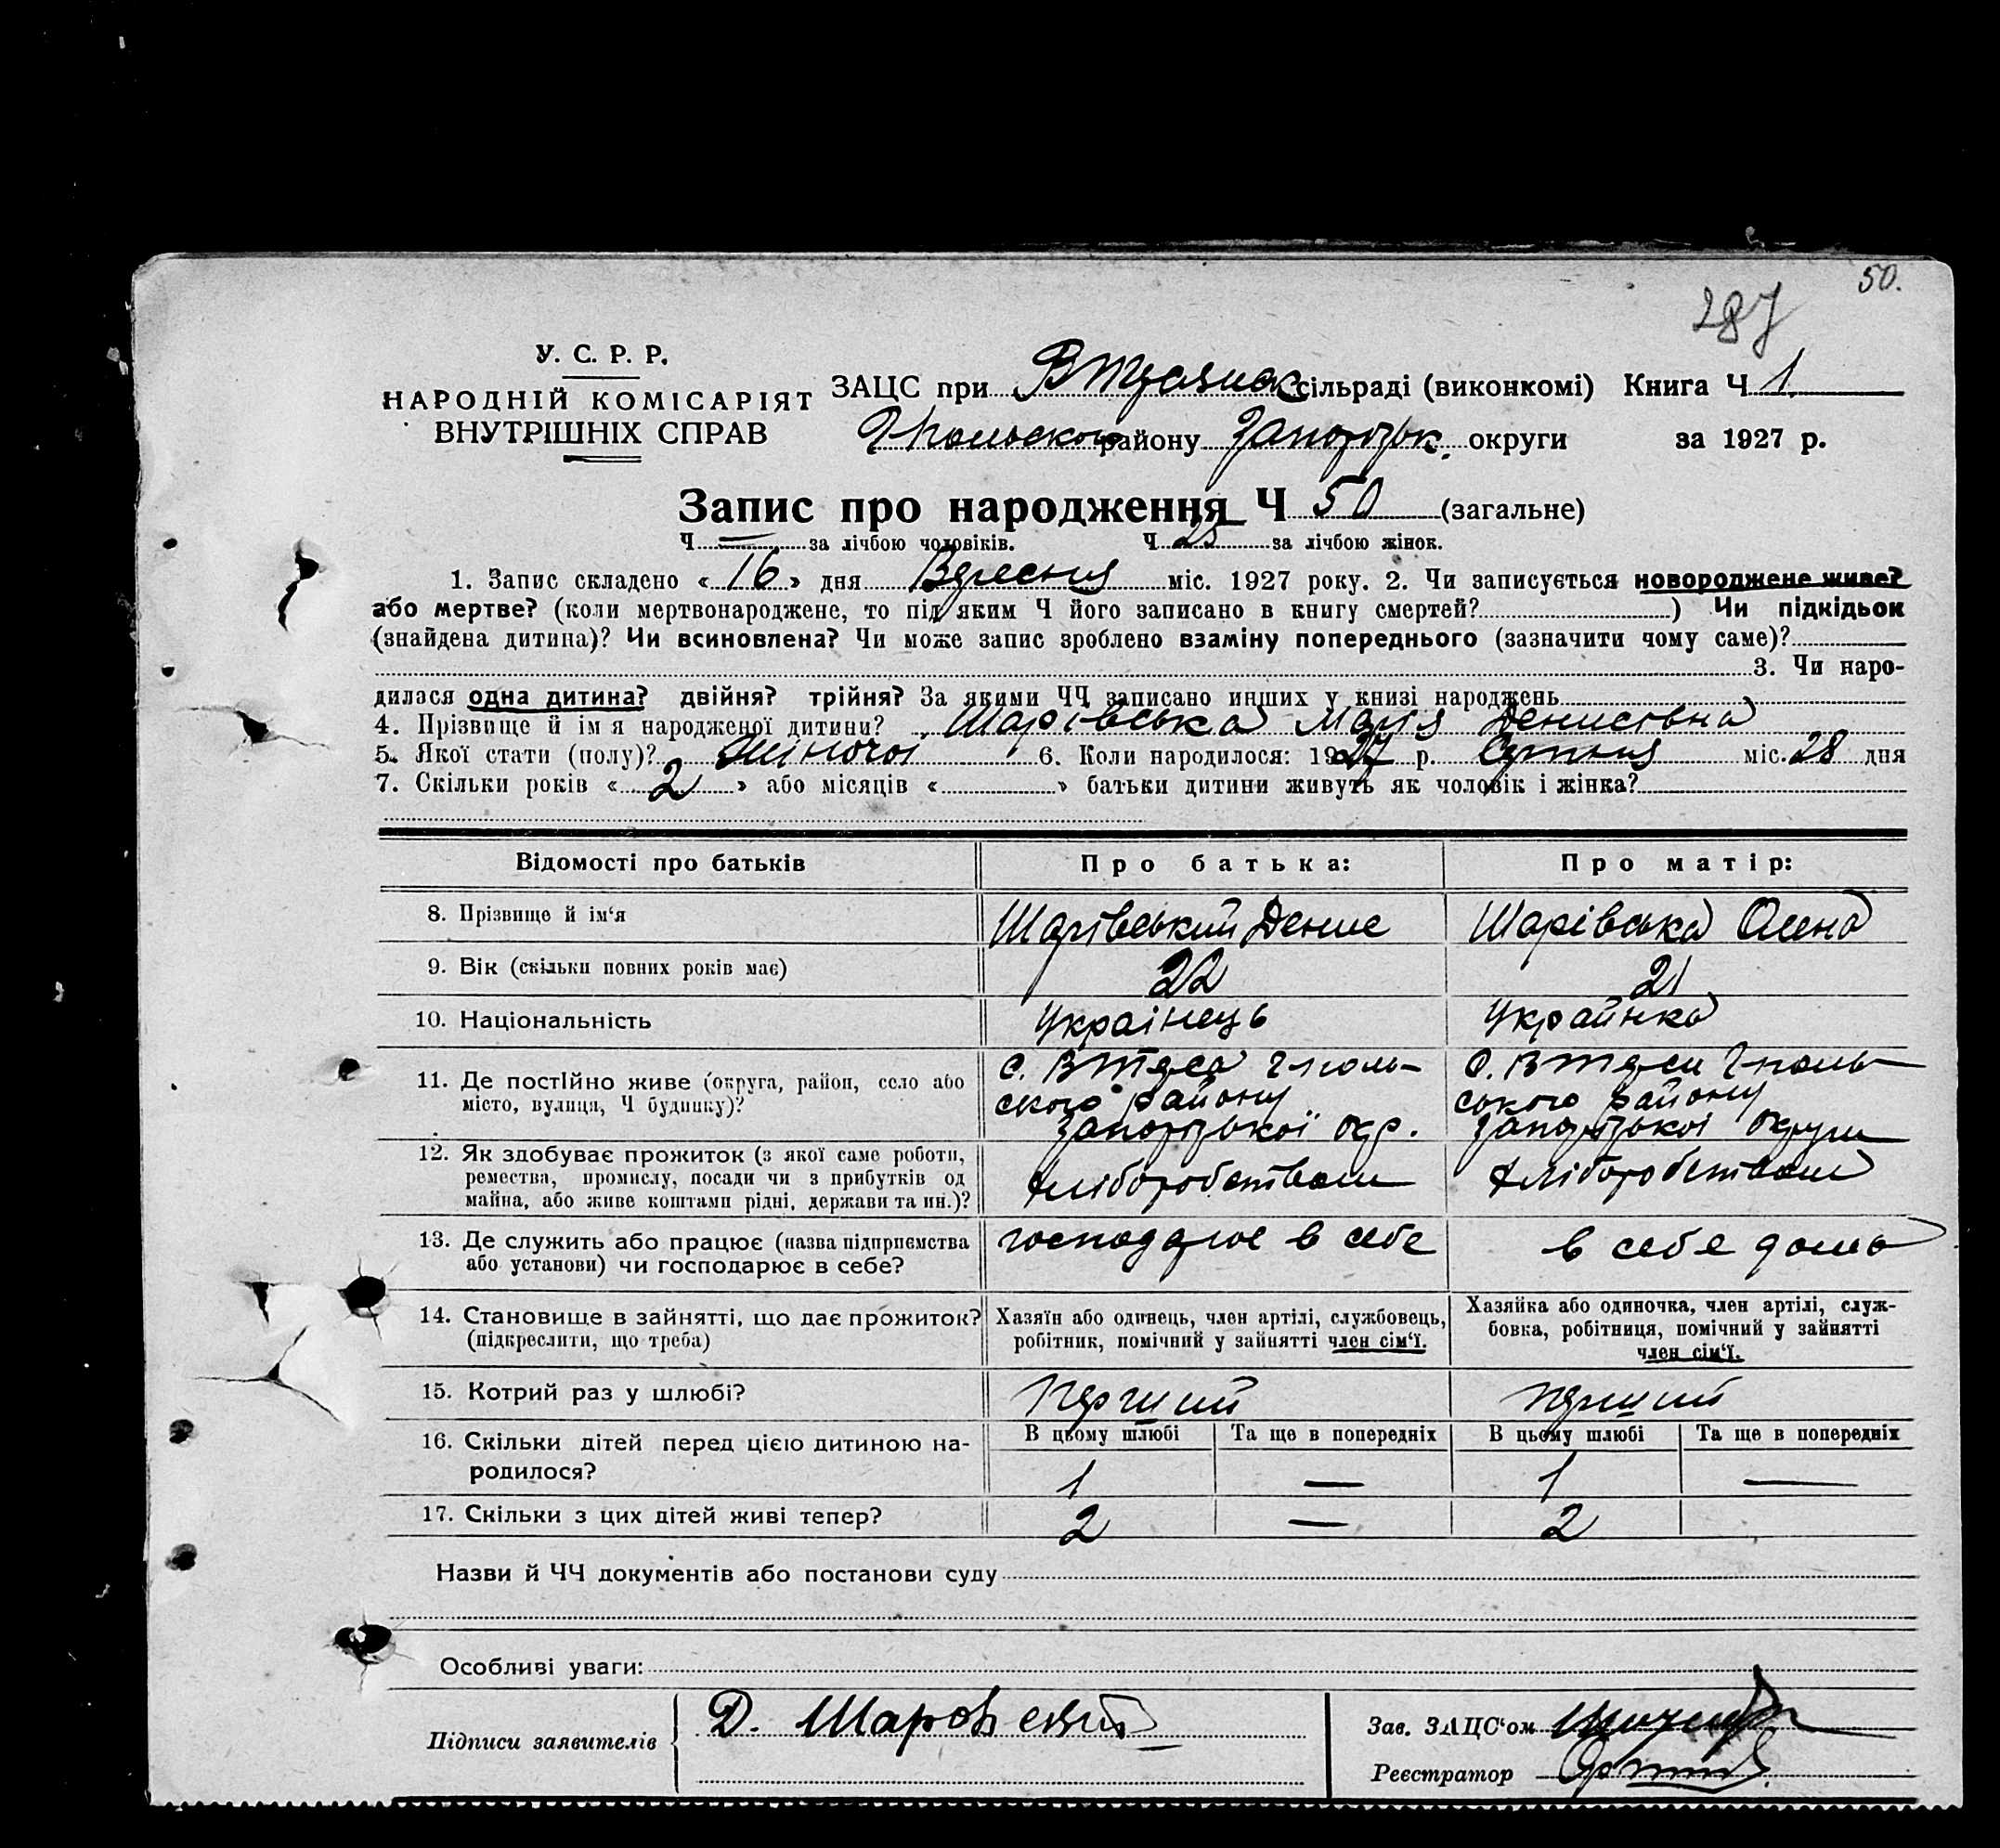 50.
287
У. С. Р. Р.
НАРОДНІЙ КОМІСАРІЯТ
ВНУТРІШНІХ СПРАВ
ЗАЦС при сільраді (виконкомі) Книга Ч 1
району Запорізьк. округи за 1927 р.
Запис про народження Ч 50 (загальне)
Ч — за лічбою чоловіків. Ч 25 за лічбою жінок.
1. Запис складено « 16 » дня Вересня міс. 1927 року. 2. Чи записується новороджене живе?
або мертве? (коли мертвонароджене, то під яким Ч його записано в книгу смертей? ) Чи підкідьок
(знайдена дитина)? Чи всиновлена? Чи може запис зроблено взаміну попереднього (зазначити чому саме)?
3. Чи наро-
дилася одна дитина? двійня? трійня? За якими ЧЧ записано инших у книзі народжень
4. Прізвище й імя народженої дитини? Шарівська Марія Денисівна
5. Якої стати (полу)? жіночої 6. Коли народилося: 1927 р. Серпня міс. 28 дня
7. Скільки років « 2 » або місяців « » батьки дитини живуть як чоловік і жінка?
Відомості про батьків Про батька: Про матір:
8. Прізвище й ім‘я Шарівський Денис Шарівська Олена
9. Вік (скільки повних років має) 22 21
10. Національність Украінець Українка
11. Де постійно живе (округа, район, село або
місто, вулиця, Ч будинку)?
с. ського району
Запорізької окр.
с. ського району
Запорізької округи
12. Як здобуває прожиток (з якої саме роботи,
ремества, промислу, посади чи з прибутків од
майна, або живе коштами рідні, держави та ин.)?
хліборобством хліборобством
13. Де служить або працює (назва підприємства
або установи) чи господарює в себе?
господарює в себе в себе дома
14. Становище в зайнятті, що дає прожиток?
(підкреслити, що треба)
Хазяїн або одинець, член артілі, службовець,
робітник, помічний у зайнятті член сім‘ї.
Хазяйка або одиночка, член артілі, служ-
бовка, робітниця, помічний у зайнятті
член сім‘ї.
15. Котрий раз у шлюбі? перший перший
16. Скільки дітей перед цією дитиною на-
родилося?
В цьому шлюбі Та ще в попередніх В цьому шлюбі Та ще в попередніх
1 — 1 —
17. Скільки з цих дітей живі тепер? 2 — 2
Назви й ЧЧ документів або постанови суду
Особливі уваги:
Підписи заявителів Д. Шаровский
Зав. ЗАЦС‘ом
Реєстратор